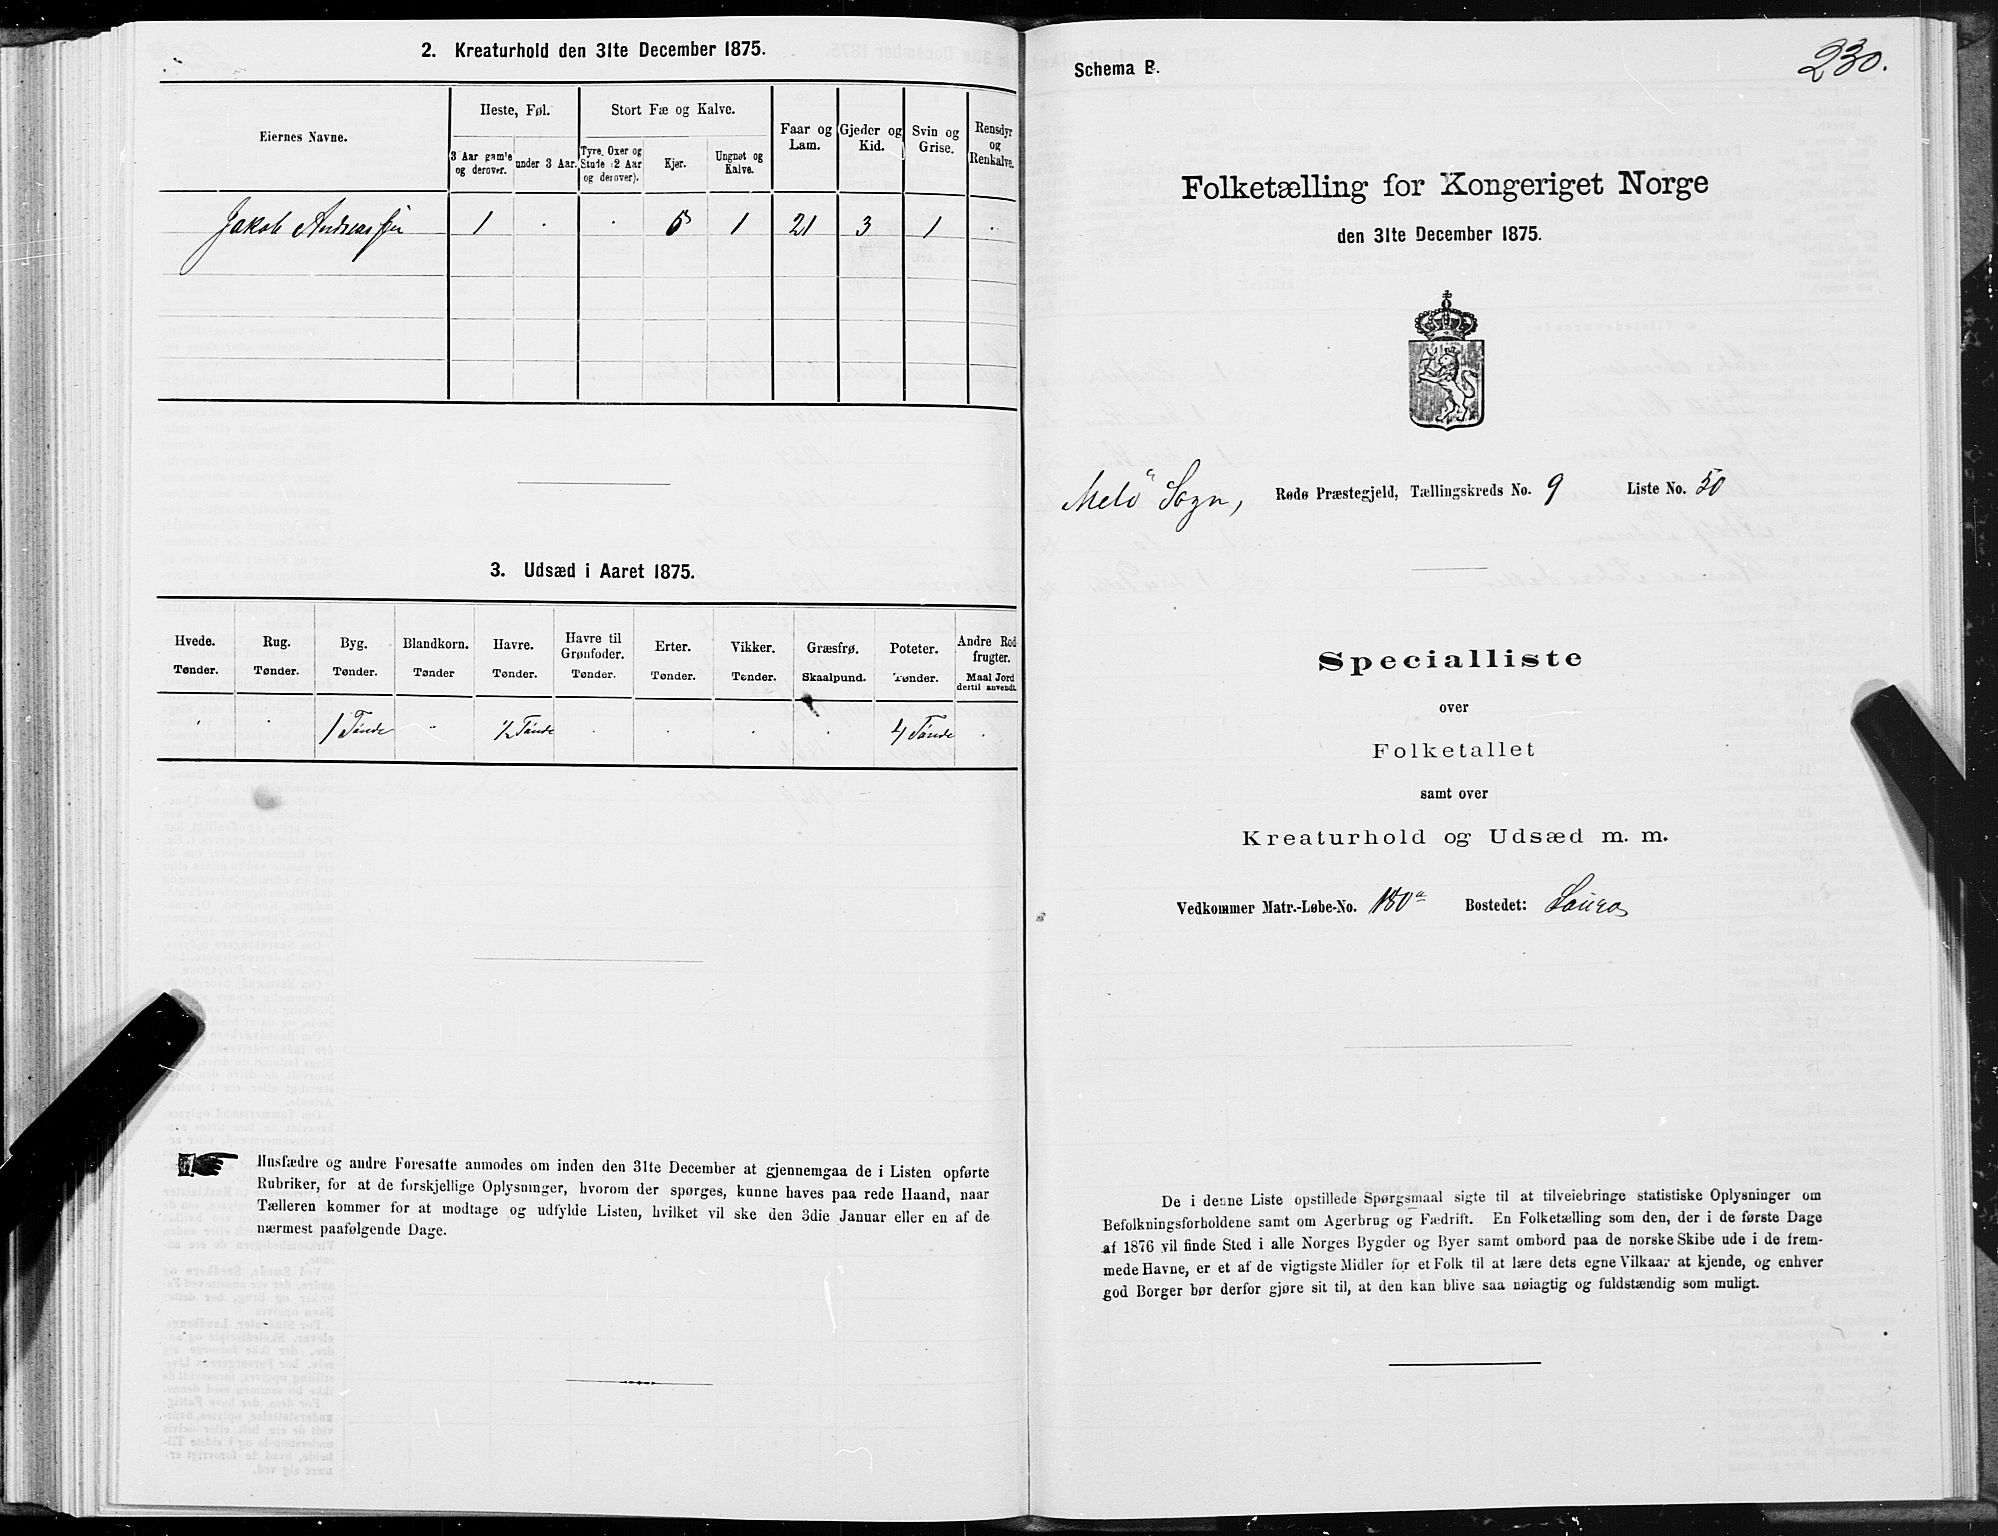 2. Kreaturhold den 31te December 1875.
Eiernes Navne.
Heste, Føl.
Stort Fæ og Kalve.
Faar og Lam.
Gjeder og Kid.
Svin og Grise.
Rensdyr og Renkalve.
3 Aar gamle og derover.
under 3 Aar.
Tyre, Oxer og Stude (2 Aar og derover).
Kjør.
Ungnøt og Kalve.
Jakob Andreassen 1 . . 5 1 21 3 1 .
3. Udsæd i Aaret 1875.
Hvede. Rug. Byg. Blandkorn. Havre. Havre til Grønfoder. Erter. Vikker. Græsfrø. Poteter. Andre Rodfrugter.
Tønder. Tønder. Tønder. Tønder Tønder. Tønder. Tønder. Tønder. Skaalpund. Tønder. Maal Jord dertil anvendt.
1 Tønde ½ Tønde 4 Tønde
Husfædre og andre Foresatte anmodes om inden den 31te December at gjennemgaa de i Listen opførte
Rubriker, for at de forskjellige Oplysninger, hvorom der spørges, kunne haves paa rede Haand, naar
Tælleren kommer for at modtage og udfylde Listen, hvilket vil ske den 3die Januar eller en af de
nærmest paafølgende Dage.
230.
Schema B.
Folketælling for Kongeriget Norge
den 31te December 1875.
Melö Sogn, Rødø Præstegjeld, Tællingskreds No. 9 Liste No. 50
Specialliste
over
Folketallet
samt over
Kreaturhold og Udsæd m. m.
Vedkommer Matr.-Løbe-No. 180a Bostedet:
De i denne Liste opstillede Spørgsmaal sigte til at tilveiebringe statistiske Oplysninger om
Befolkningsforholdene samt om Agerbrug og Fædrift. En Folketælling som den, der i de første Dage
af 1876 vil finde Sted i alle Norges Bygder og Byer samt ombord paa de norske Skibe ude i de frem-
mede Havne, er et af de vigtigste Midler for et Folk til at lære dets egne Vilkaar at kjende, og enhver
god Borger bør derfor gjøre sit til, at den kan blive saa nøiagtig og fuldstændig som muligt.